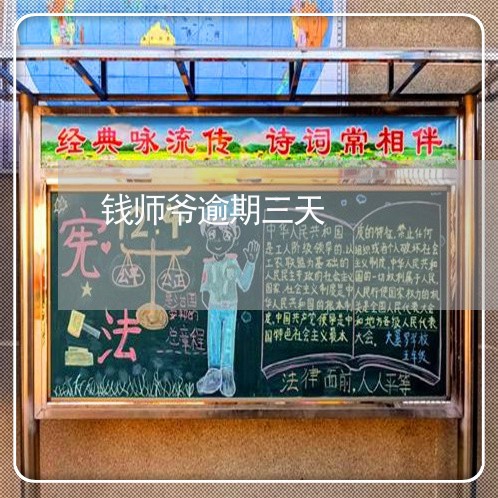 经典咏流传 诗词常相伴
钱师爷逾期三天
宪
法
公平
公正
总章程
中华人民共和国
是工人阶级领导的,以
工农联盟为基础的
人民民主专政的社会主义
国家。社会主义制度是中
华人民共和国的根本制
度。中国共产党领导是中
国特色社会主义最本
质的特征。禁止任何
组织或者个人破坏社会
主义制度。中华人民共和
国的一切权利属于人民。
人民行使国家权力的机
关是全国人民代表大会
和地方各级人民代表
大会。
五年级
法律面前,人人平等